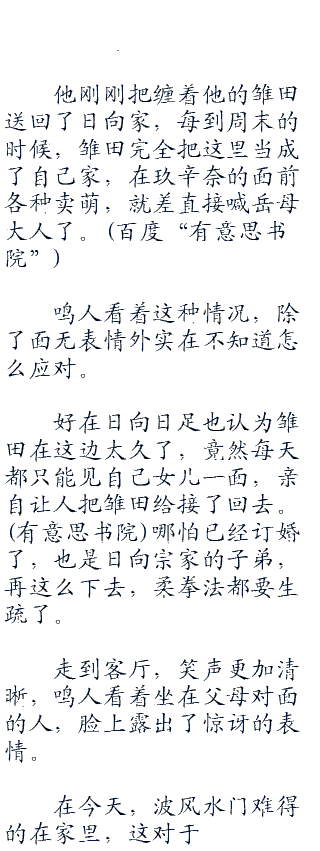 他刚刚把缠着他的雏田
送回了日向家，每到周末的
时候，雏田完全把这里当成
了自己家，在玖辛奈的面前
各种卖萌，就差直接喊岳母
大人了。(百度“有意思书
院”)
鸣人看着这种情况，除
了面无表情外实在不知道怎
么应对。
好在日向日足也认为雏
田在这边太久了，竟然每天
都只能见自己女儿一面，亲
自让人把雏田给接了回去。
(有意思书院)哪怕已经订婚
了，也是日向宗家的子弟，
再这么下去，柔拳法都要生
疏了。
走到客厅，笑声更加清
晰，鸣人看着坐在父母对面
的人，脸上露出了惊讶的表
情。
在今天，波风水门难得
的在家里，这对于